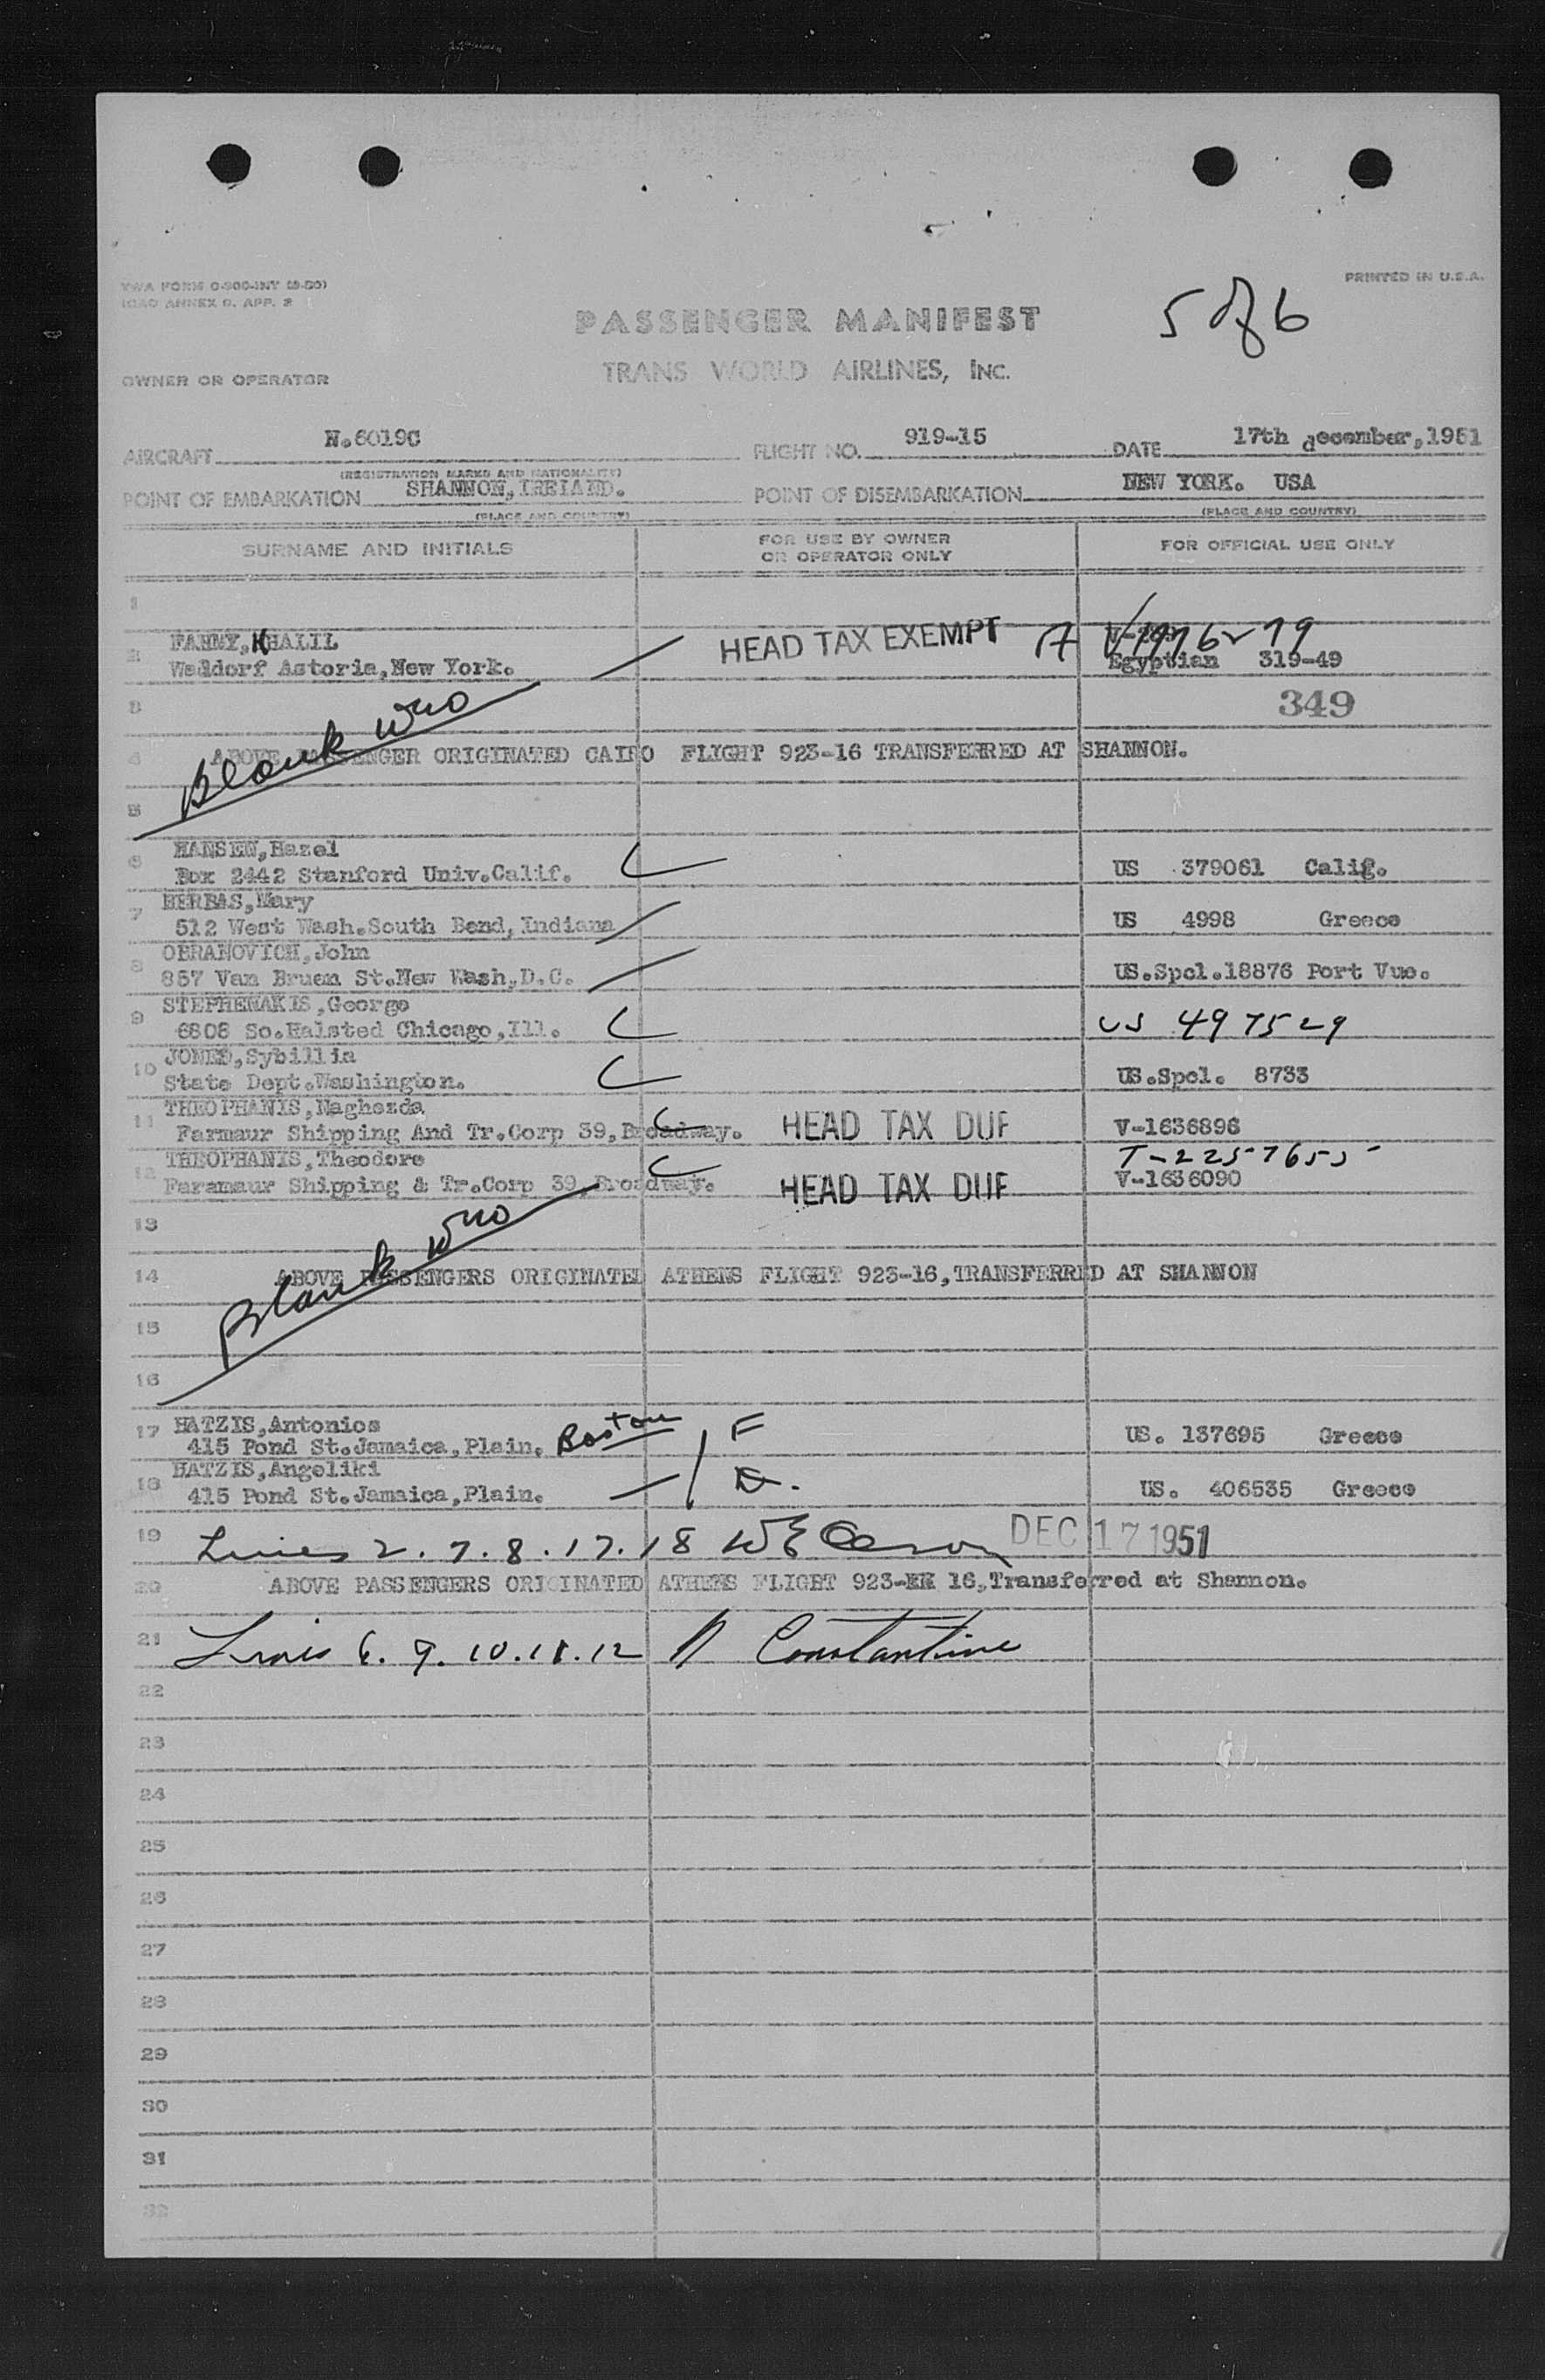 TWA FORM O-900-INT (5-50)
ICAO ANNEX 9, APP. 2
PRINTED IN U.S.A.
5 of 6
PASSENGER MANIFEST
TRANS WORLD AIRLINES, INC.
OWNER OR OPERATOR
AIRCRAFT N.6019C FLIGHT NO. 919-15 DATE 17th december,1951
(REGISTRATION MARKS AND NATIONALITY)
POINT OF EMBARKATION SHANNON,IRELAND. POINT OF DISEMBARKATION NEW YORK. USA
(PLACE AND COUNTRY) (PLACE AND COUNTRY)
SURNAME AND INITIALS FOR USE BY OWNER OR OPERATOR ONLY FOR OFFICIAL USE ONLY
1
2 FAHMY,KHALIL HEAD TAX EXEMPT
Waldorf Astoria,New York. Egyptian 319-49
3 349
Blank
4 ABOVE PASSENGER ORIGINATED CAIRO FLIGHT 923-16 TRANSFERRED AT SHANNON.
5
6 HANSEN,Hazel
Box 2442 Stanford Univ.Calif. US 379061 Calif.
7 BERBAS,Mary
512 West Wash.South Bend,Indiana US 4998 Greece
8 OBRANOVICH,John
857 Van Bruen St.New Wash,D.C. US.Spcl.18876 Port Vue.
9 STEPHENAKIS,George
6808 So.Halsted Chicago,Ill. US 497529
10 JONES,Sybillia
State Dept.Washington. US.Spcl. 8733
11 THEOPHANIS,Naghezda
Farmaur Shipping And Tr.Corp 39,Broadway. HEAD TAX DUE V-1636896
12 THEOPHANIS,Theodore T-2257655
Faramaur Shipping & Tr.Corp 39,Broadway. HEAD TAX DUE V-1636090
13
Blank
14 ABOVE PASSENGERS ORIGINATED ATHENS FLIGHT 923-16,TRANSFERRED AT SHANNON
15
16
17 HATZIS,Antonios
415 Pond St.Jamaica,Plain. Boston F US. 137695 Greece
18 HATZIS,Angeliki
415 Pond St.Jamaica,Plain. US. 406535 Greece
19 Lines 2.7.8.17.18 DEC 17 1951
20 ABOVE PASSENGERS ORIGINATED ATHENS FLIGHT 923-EK 16,Transferred at Shannon.
21 Lines 6.9.10.11.12 N Constantine
22
23
24
25
26
27
28
29
30
31
32